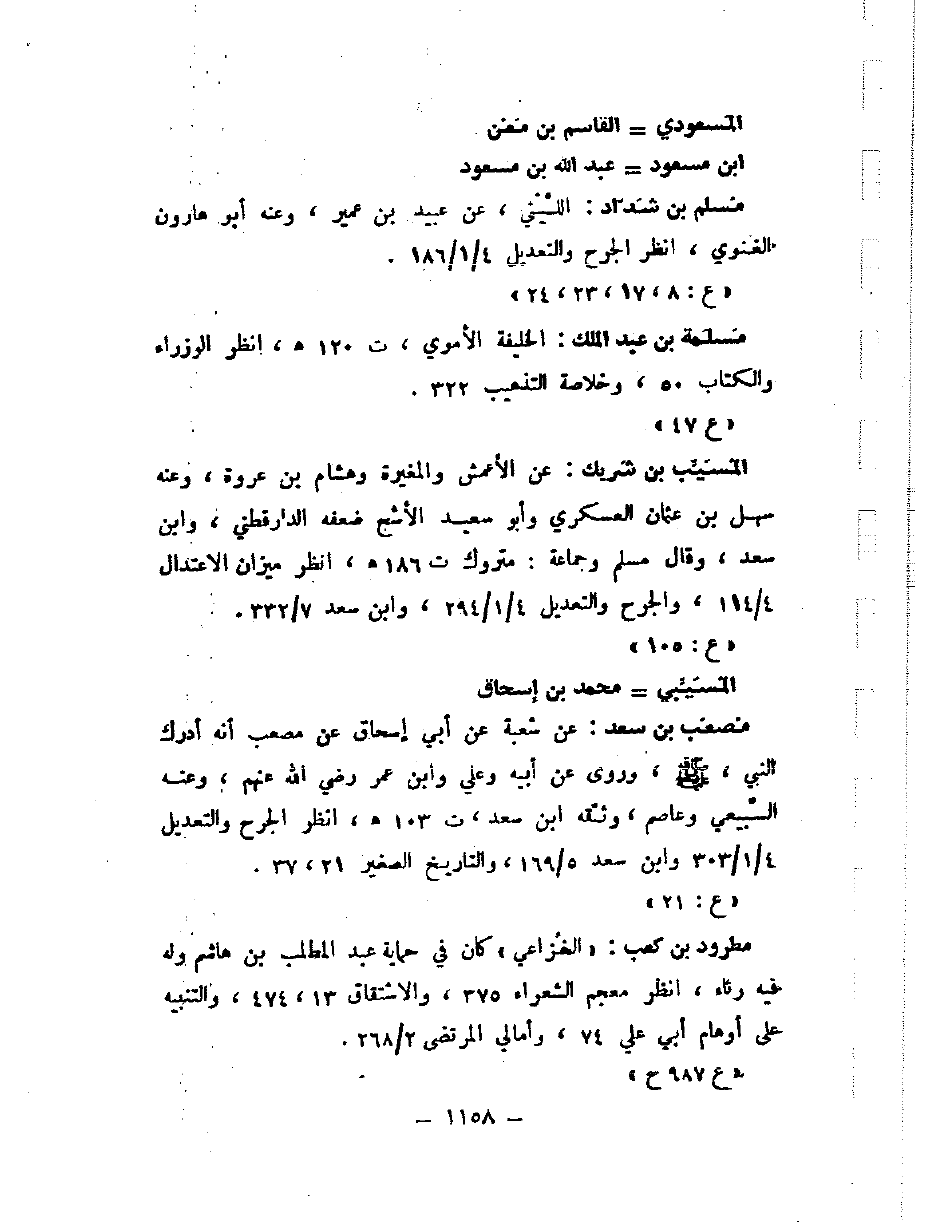 المسعودي = القاسم بن مَعْن
ابن مسعود = عبد الله بن مسعود
مُسلم بن شَدّاد : اللَّيْثي ، عن عبيد بن عمير ، وعنه أبو هارون
الغنوي ، انظر الجرح والتعديل ١٨٦/١/٤ .
« ع : ٨ ، ١٧ ، ٢٣ ، ٢٤ »
مَسلَمة بن عبد الملك : الخليفة الأموي ، ت ١٢٠ ه ، انظر الوزراء
والكتاب ٥٠ ، وخلاصة التذهيب ٣٢٢ .
« ع ٤٧ »
المُسَيَّب بن شَريك : عن الأعمش والمغيرة وهشام بن عروة ، وعنه
سهل بن عثمان العسكري وأبو سعيد الأشج ضعفه الدارقطني ، وابن
سعد ، وقال مسلم وجماعة : متروك ت ١٨٦ ه ، انظر ميزان الاعتدال
١١٤/٤ ، والجرح والتعديل ٢٩٤/١/٤ ، وابن سعد ٣٣٢/٧ .
« ع : ١٠٥ »
المُسَيَّبي = محمد بن إسحاق
مُصعَب بن سعد : عن شعبة عن أبي إسحاق عن مصعب أنه أدرك
النبي ، ﷺ ، وروى عن أبيه وعلي وابن عمر رضي الله عنهم ، وعنه
السَّبيعي وعاصم ، وثقه ابن سعد ، ت ١٠٣ ه ، انظر الجرح والتعديل
٣٠٣/١/٤ وابن سعد ١٦٩/٥ ، والتاريخ الصغير ٢١ ، ٣٧ .
« ع : ٢١ »
مطرود بن كعب : « الخُزاعي » كان في حماية عبد المطلب بن هاشم وله
فيه رثاء ، انظر معجم الشعراء ٣٧٥ ، والاشتقاق ١٣ ، ٤٧٤ ، والتنبيه
على أوهام أبي علي ٧٤ ، وأمالي المرتضى ٢٦٨/٢ .
« ع ٩٨٧ ح »
— ١١٥٨ —